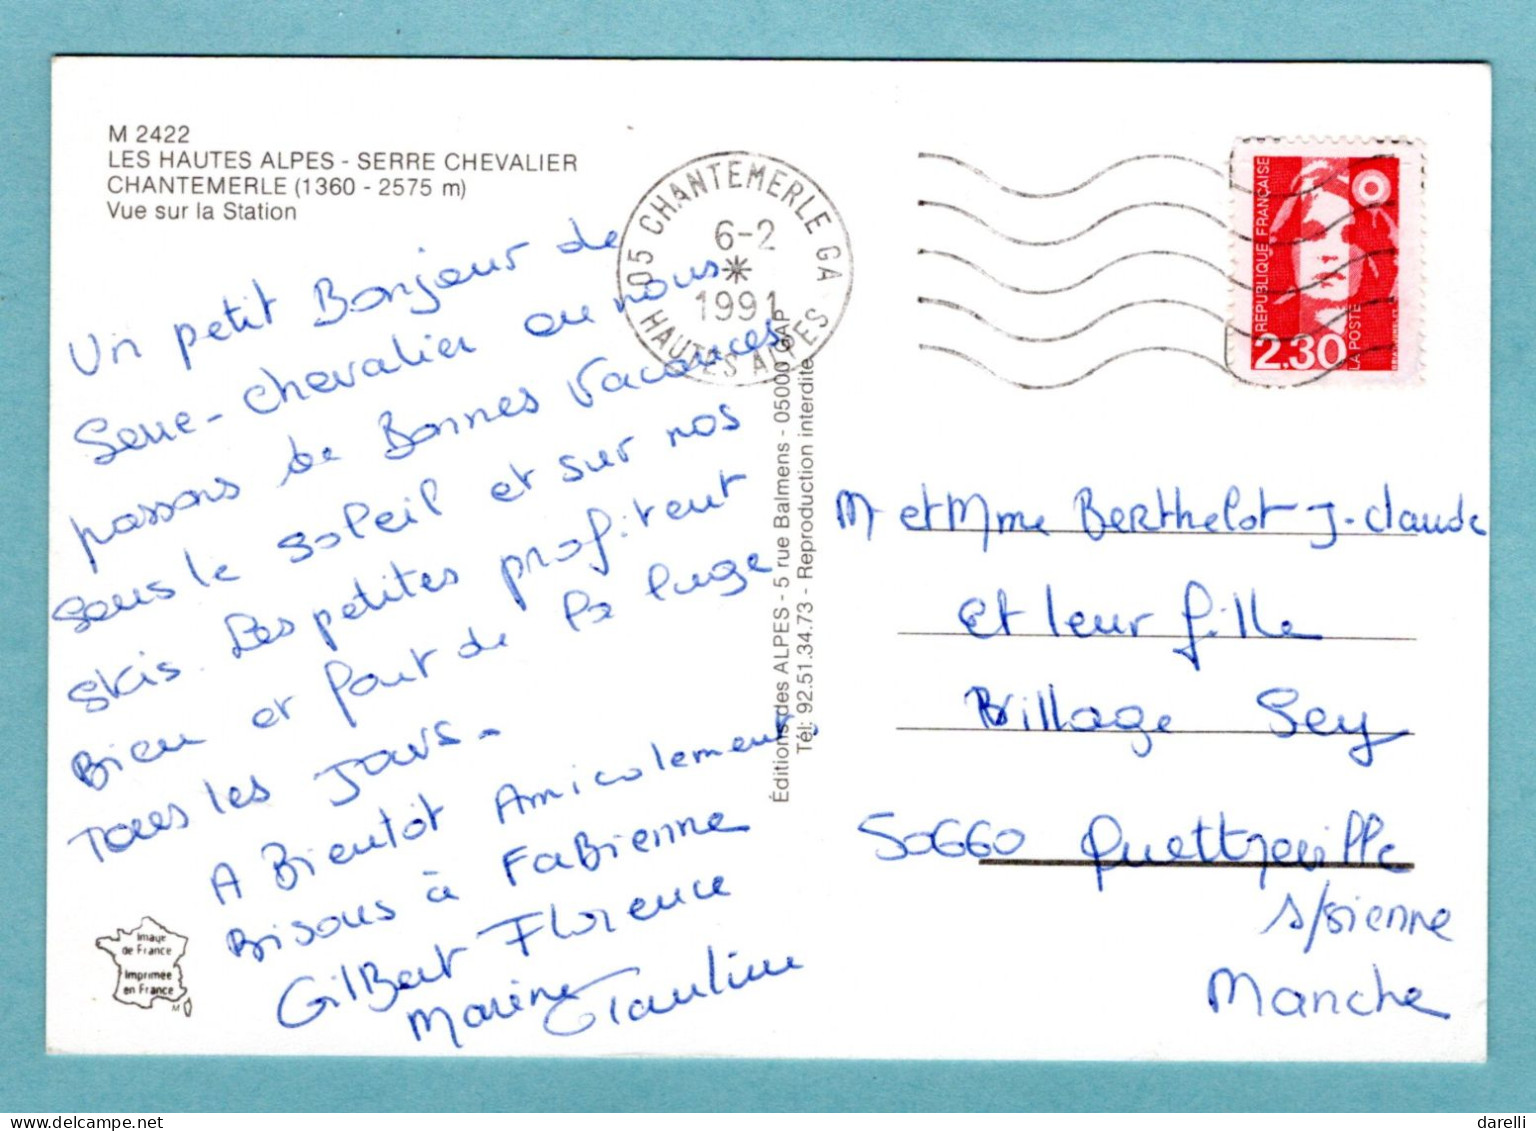 M 2422
LES HAUTES ALPES - SERRE CHEVALIER
CHANTEMERLE (1360 - 2575 m)
Vue sur la Station
Un petit Bonjour de
Serre-chevalier ou nous
passons de Bonnes Vacances
sous le soleil et sur nos
skis. Les petites profitent
Bien et font de la luge
Tous les jours.
A Bientôt Amicalement.
Bisous à Fabienne
Gilbert Florence
Marine Pauline
Image
de France
Imprimée
en France
M
05 CHANTEMERLE GA
6-2
1991
HAUTES ALPES
Éditions des ALPES - 5 rue Balmens - 05000 GAP
Tél: 92.51.34.73 - Reproduction interdite
RÉPUBLIQUE FRANÇAISE
2,30
LA POSTE
M et Mme Berthelot J-Claude
et leur fille
Village Sey
50660 Quettreville
s/sienne
Manche
darelli